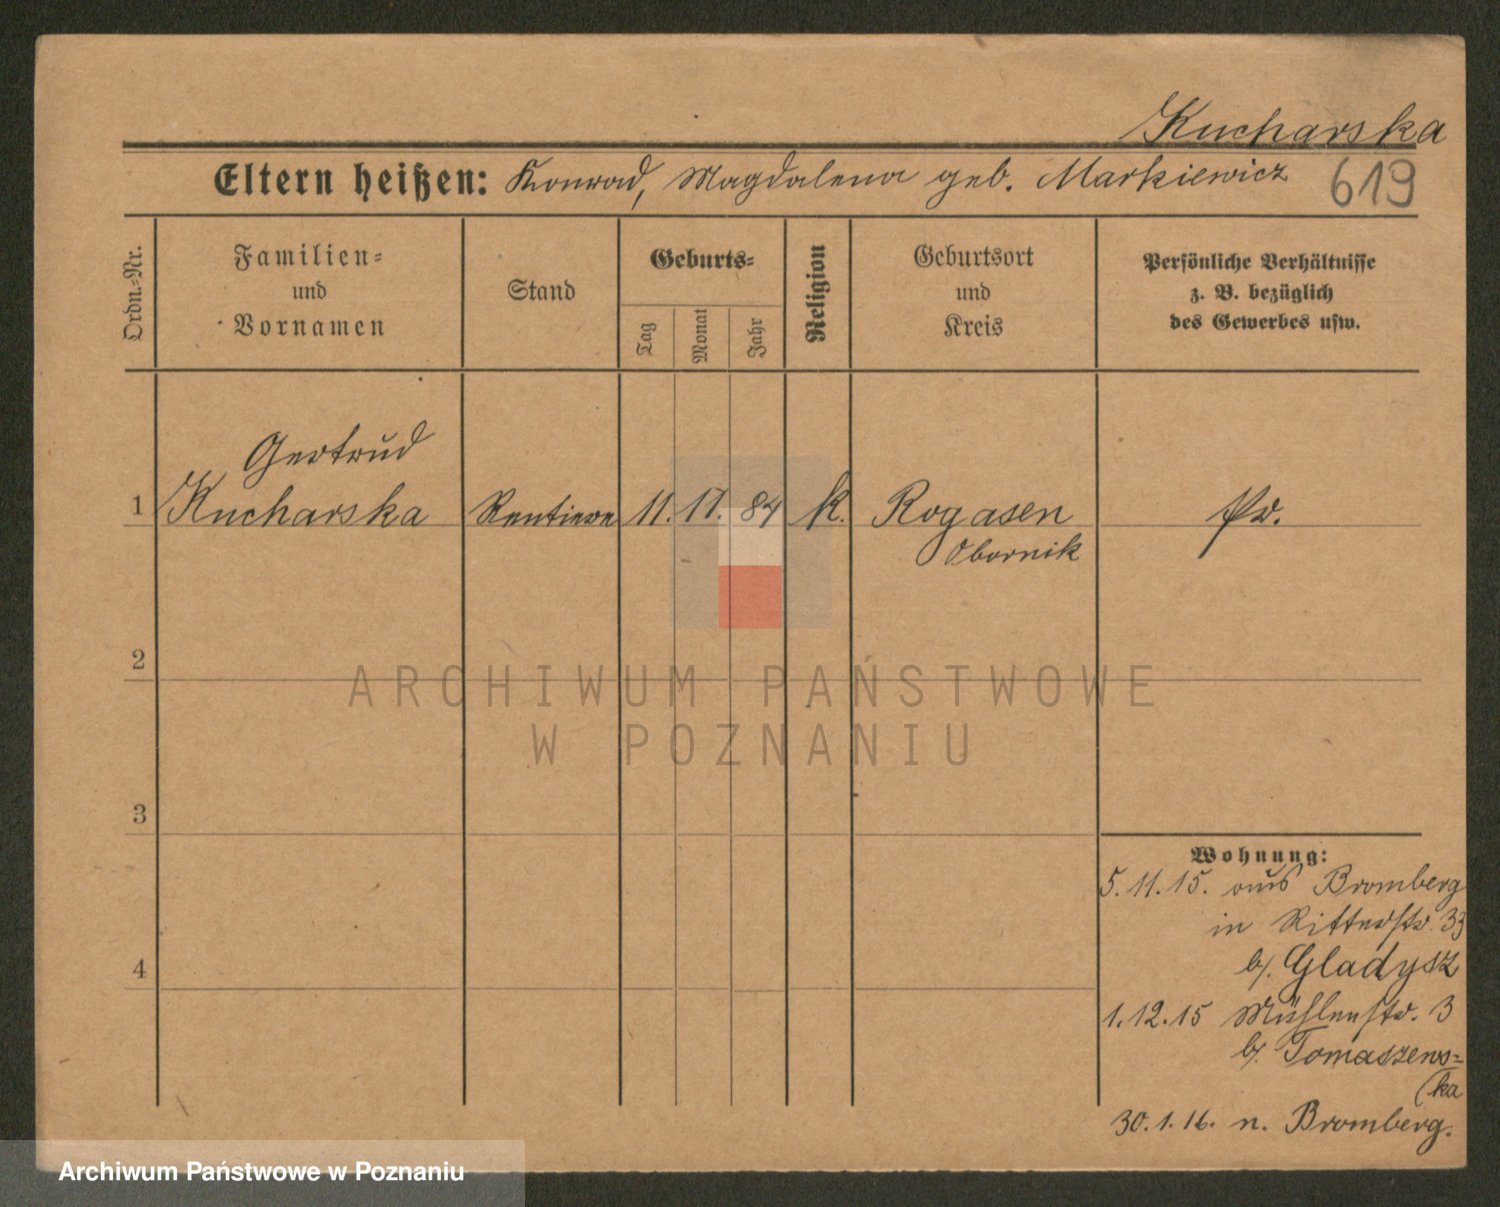 Kucharska
Eltern heißen: Konrad, Magdalena geb. Markiewicz 619
Ordn.-Nr.
Familien-
und
Vornamen
Stand
Geburts-
Tag
Monat
Jahr
Religion
Geburtsort
und
Kreis
Persönliche Verhältnisse
z. B. bezüglich
des Gewerbes usw.
Gertrud
1 Kucharska Rentiere 11. 11. 84 k. Rogasen Pr.
Obornik
2
ARCHIWUM PAŃSTWOWE
W POZNANIU
3
Wohnung:
5.11.15. aus Bromberg
in Ritterstr. 33
b/. Gladysz
4
1.12.15 Mühlenstr. 3
b/. Tomaszews-
ka
30.1.16. n. Bromberg.
Archiwum Państwowe w Poznaniu